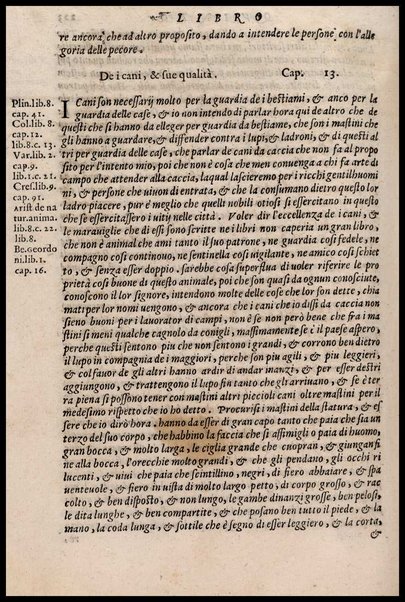 LIBRO
re ancora, che ad altro proposito, dando a intendere le persone con l'alle
goria delle pecore.
De i cani, & sue qualità. Cap. 13.
Plin. lib. 8.
cap. 41.
Col. lib. 8.
cap. 12.
lib. 8. c. 13.
Var. lib. 2.
cap. 9.
lib. 1. c. 21.
Cres. lib. 9.
cap. 91.
Arist. de na
tur. anima.
lib. 8. c. 22.
lib. 8.
Be. Geordo
ni. lib. 1.
cap. 16.
I Cani son necessarij molto per la guardia de i bestiami, & anco per la
guardia delle case, & io non intendo di parlar hora qui de altro che de
questi che si hanno da elleger per guardia da bestiame, che son i mastini che
gli hanno a guardare, & diffender contra i lupi, & ladroni, & di questi al
tri per guardia delle case, che parlar de cani da caccia che non fa al propo
sito per l'intento mio, poi che non è cosa che men conuenga a chi fa arte di
campo che attender alla caccia, laqual lascieremo per i ricchi gentilhuomi
ni, & persone che uiuon di entrata, & che la consumano dietro questo lor
ladro piacere, pur è meglio che quelli nobili otiosi si essercitano in questo
che se essercitassero i uitij nelle città. Voler dir l'eccellenza de i cani, &
le marauiglie che di essi sono scritte ne i libri non caperia un gran libro,
che non è animal che ami tanto il suo patrone, ne guardia così fedele, ne
compagno così continouo, ne sentinella così uigilante, ne amico così schiet
to, & senza esser doppio. sarebbe cosa superflua di uoler riferire le pro
prietà così buone di questo animale, poi che son quasi da ognun conosciute,
conoscono il lor signore, intendono molte delle cose che lor son dette, chia
mati per lor nomi uengono, & ancora che i cani che io dissi da caccia non
sieno buoni per i lauorator di campi, non è se non però bene che fra i ma
stini si meni qualche cagnolo da conigli, massimamente se è il paese aspero,
perche questi sentono piu che non sentono i grandi, & corrono ben dietro
il lupo in compagnia de i maggiori, perche son piu agili, & piu leggieri,
& col fauor de gli altri hanno ardir di andar manzi, & per esser destri
aggiungono, & trattengono il lupo sin tanto che gli arriuano, & se è ter
ra piena si possono tener con mastini altri piccioli cani oltre mastini per il
medesimo rispetto che io ho detto. Procurisi i mastini della statura, & es
sere che io dirò hora. hanno da esser di gran capo tanto che paia che sia un
terzo del suo corpo, che habbino la faccia che si assimigli o paia di huomo,
gran bocca, & molto larga, le ciglia grande che cuopran, & giunganfi
ne alla bocca, l'orecchie molto grandi, & che gli pendano, gli occhi ri
lucenti, & uiui che paia che scintillino, negri, di fiero abbaiare, & spa
uenteuole, & fiero in uista di molto largo petto, di corpo grosso, & rac
colto, & ben disposto, & non lungo, le gambe dinanzi grosse, ben pelosi,
le dita lunghe, & ben compartite, & che posano ben tutto il piede, & la
mano, la coda lunga, & sottile che è segno di esser leggiero, & la corta,
&